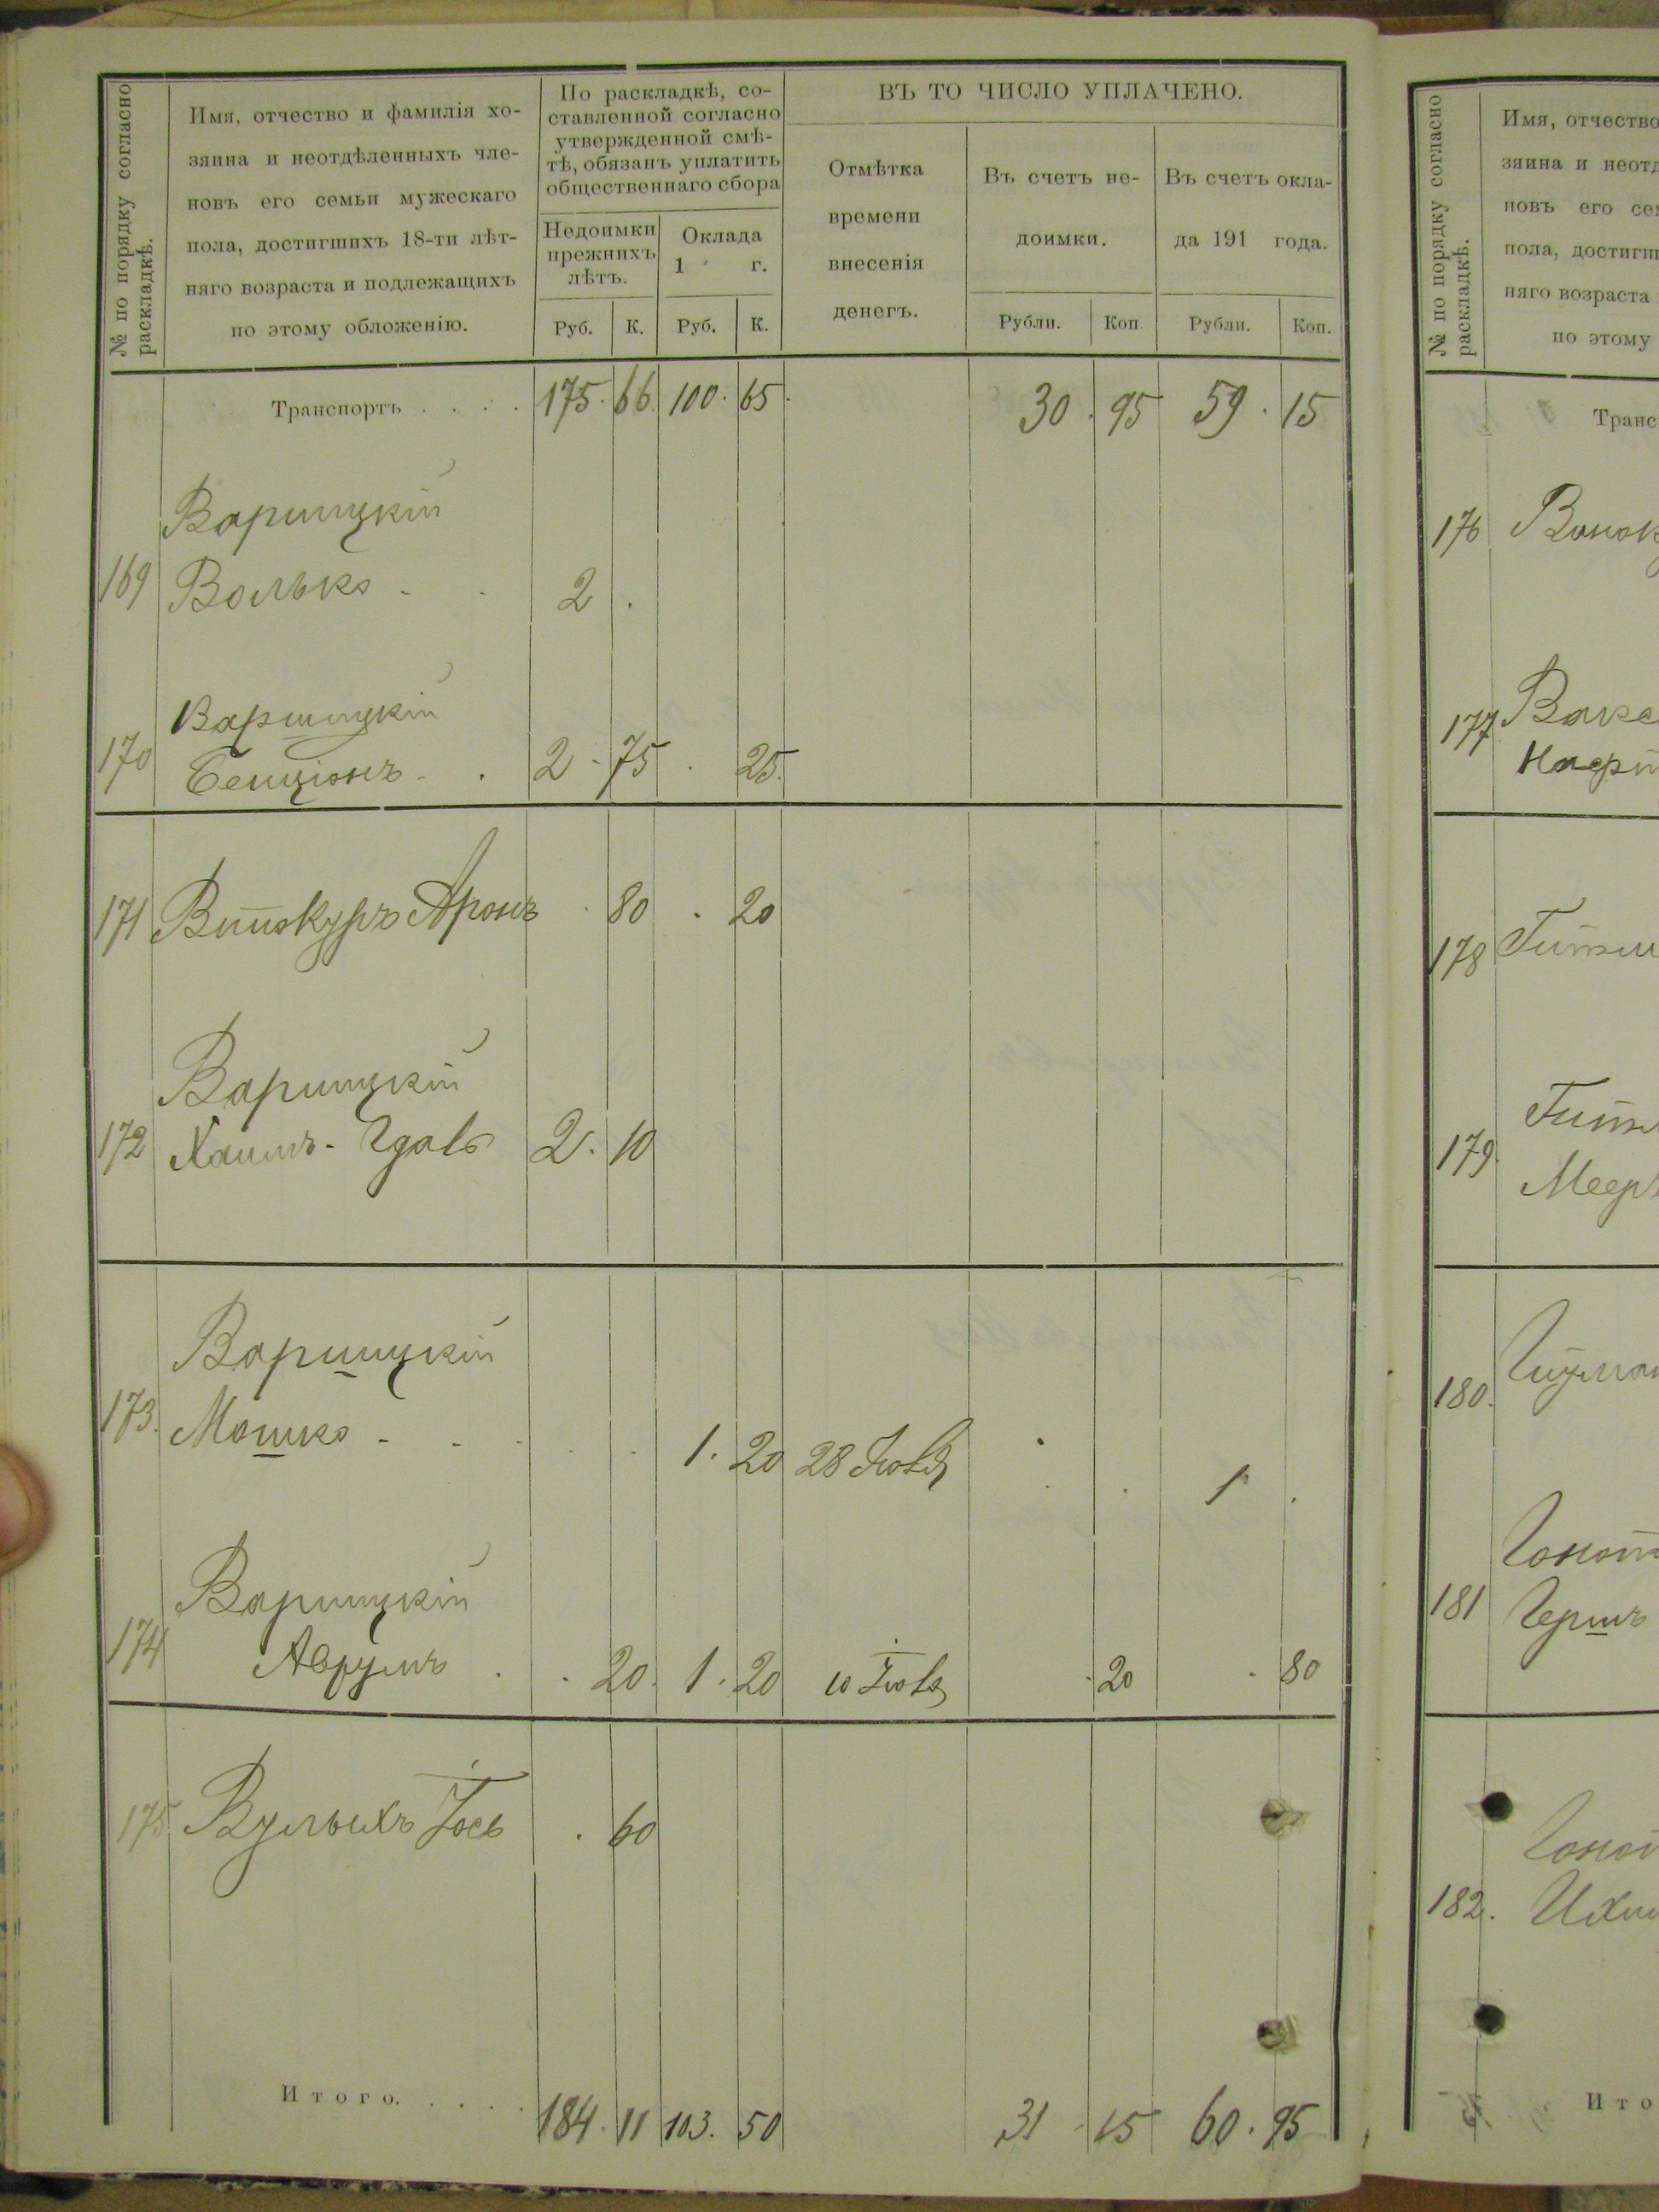 № по порядку согласно
раскладкѣ.
Имя, отчество и фамилія хо-
зяина и неотдѣленныхъ чле-
новъ его семьи мужескаго
пола, достигшихъ 18-ти лѣт-
няго возраста и подлежащихъ
по этому обложенію.
По раскладкѣ, со-
ставленной согласно
утвержденной смѣ-
тѣ, обязанъ уплатить
общественнаго сбора
Недоимки
прежнихъ
лѣтъ.
Оклада
1 г.
Руб. К. Руб. К.
ВЪ ТО ЧИСЛО УПЛАЧЕНО.
Отмѣтка
времени
внесенія
денегъ.
Въ счетъ не-
доимки.
Въ счетъ окла-
да 191 года.
Рубли. Коп. Рубли. Коп.
Транспортъ . . . . 175. 66. 100. 65. 30. 95 59. 15
Варшицкій
169 Волько - . 2 .
Варшицкій
170 Бенціонъ - . 2 - 75 . 25.
171 Винокуръ Аронъ . 80 . 20
Варшицкій
172 Хаимъ- 2. 10
Варшицкій
173. Мошко - . . . . 1. 20 28 Іюля . . 1 .
Варшицкій
174 Аврумъ . . 20. 1. 20 10 Іюля . 20 . 80
175 Вулыхъ Іось . 60
Итого. . . . . 184. 11 103. 50 31 - 15 60. 95
№ по порядку согласно
раскладкѣ.
Имя, отчество
зяина и неотд
новъ его сем
пола, достигш
няго возраста
по этому
Транс
176 Винок
177
178
179
Меер
180.
181 Гершъ
182.
Ито